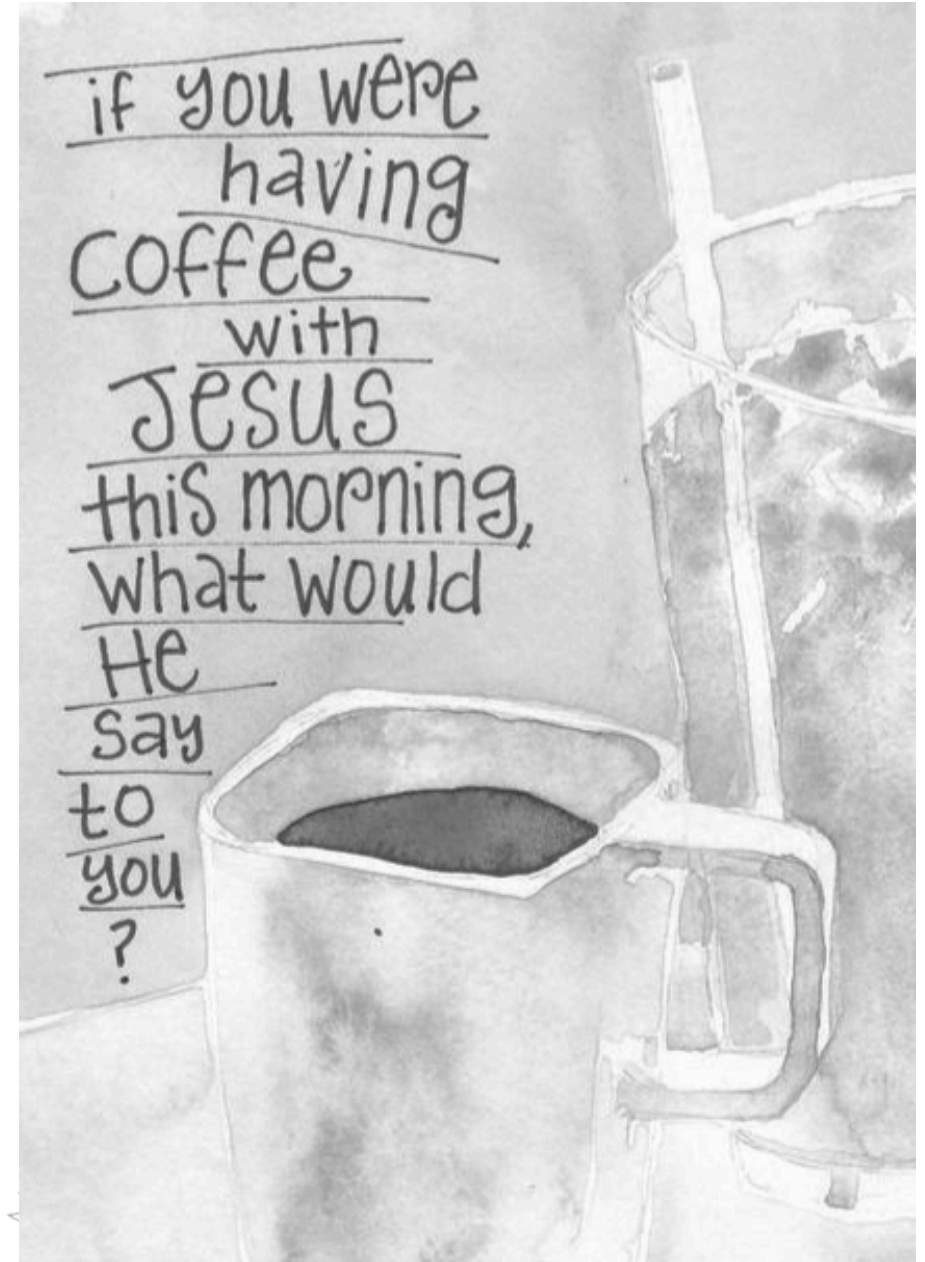 if you were
having
coffee
with
Jesus
this morning,
what would
He
say
to
you
?